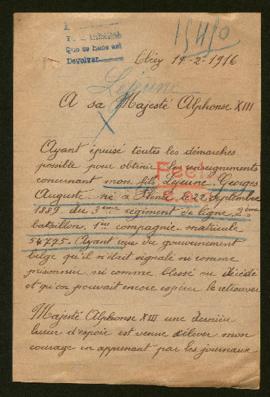 15490
Que se hace así
Devolver
Cléry 19-2-1916
Lejeune
A sa Majesté Alphonse XIII
Ayant épuisé toutes les démarches
possible pour obtenir les renseignements
concernant mon fils Lejeune Georges
Auguste né à le 22 Septembre
1889 du 3ème régiment de ligne 2ème
bataillon, 1ère compagnie matricule
54795. Ayant reçu du gouvernement
belge qu'il n'était signalé ni comme
prisonnier ni comme blessé ou décédé
et qu'on pouvait encore espérer le retrouver
Majesté Alphonse XIII une dernière
lueur d'espoir est venue mon
courage en apprenant par les journaux